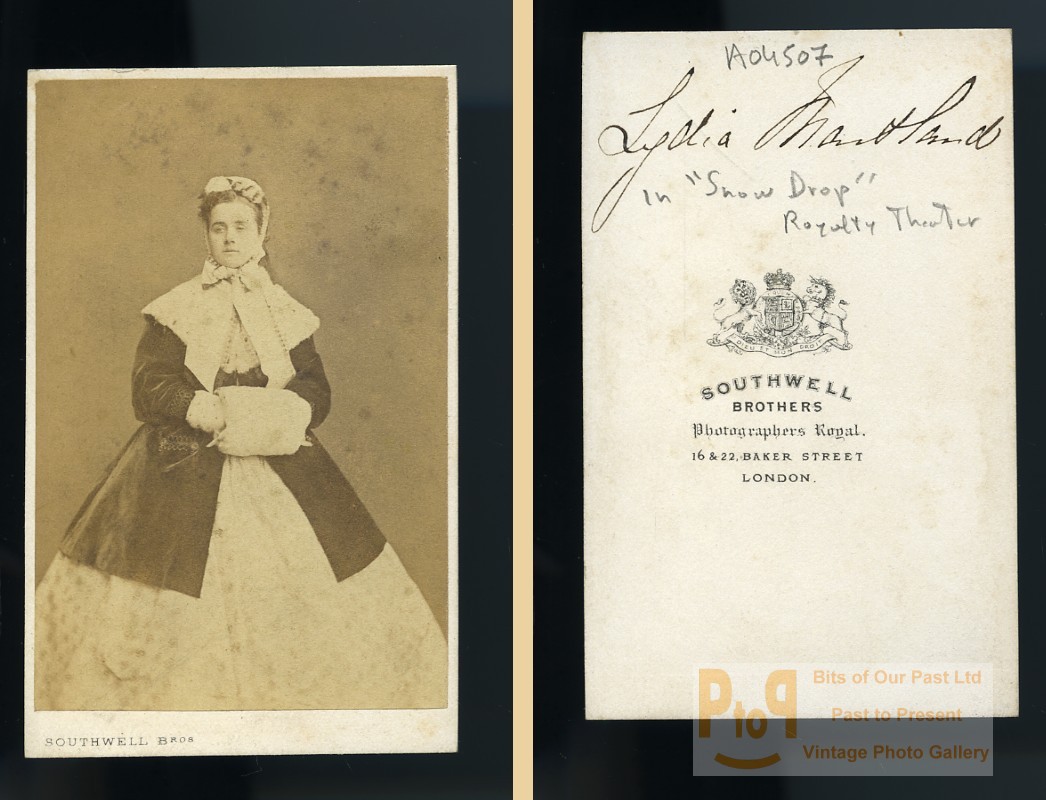 SOUTHWELL BROS
A04507
Lydia Maitland
in "Snow Drop"
Royalty Theater
DIEU ET MON DROIT
SOUTHWELL
BROTHERS
Photographers Royal.
16 & 22, BAKER STREET
LONDON.
PtoP
Bits of Our Past Ltd
Past to Present
Vintage Photo Gallery